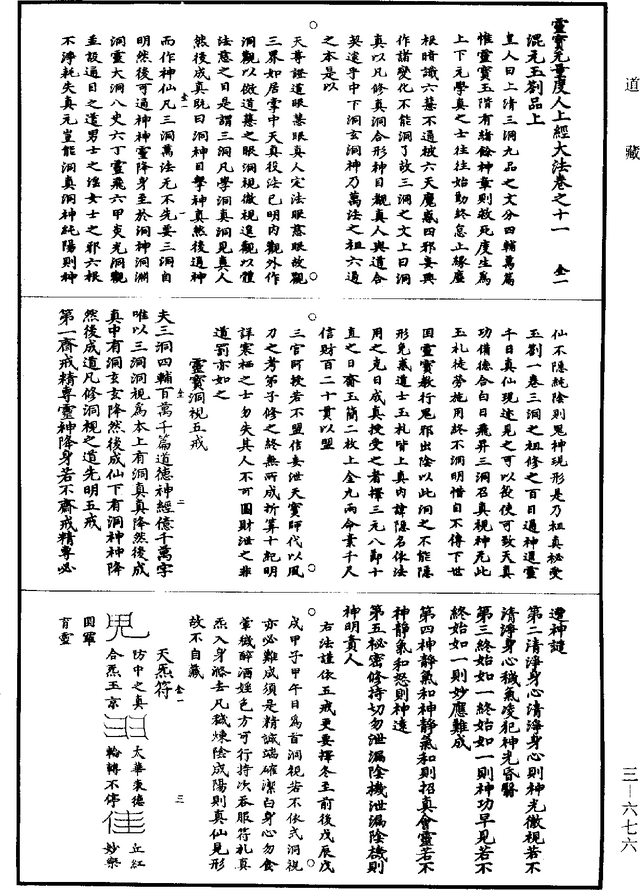 道藏
靈寶无量度人上經大法卷之十一 全一
混元玉劄品上
皇人曰上清三洞九品之文分四輔萬篇
惟靈寶玉階有緒餘神章則救死度生爲
上下元學真之士往往始勤終怠止緣塵
根暗識六慕不通被六天魔惑四邪妄興
作諸變化不能洞了故三洞之文上曰洞
真以凡修真洞合形神目觀真人與道合
契逮乎中下洞玄洞神乃萬法之祖六通
之本是以
天尊證道眼慧眼真人定法眼慈眼故觀
三界如居掌中天真役法已明內觀外作
洞觀以倣道慧之眼洞視徹視進觀以體
法慈之目是謂三洞凡學洞真洞見真人
然後成真既曰洞神目學神真然後通神
而作神仙凡三洞萬法无不先要三洞自
明然後可通神神靈降身至於洞神洞淵
洞靈大洞八史六丁靈飛六甲炎光洞觀
並設通目之道男士之淫女士之邪六根
不淨耗失真元豈能洞真洞神純陽則神
仙不隱純陰則鬼神現形是乃祖真祕受
玉劄一卷三洞之祖修之百日通神遣靈
千日真仙現迹見之可以役使可致天真
功備德合白日飛昇三洞召真視神无此
玉札徒勞施用終不洞明惜自不傳下世
因靈寶教行鬼邪出陰以此洞之不能隱
形免惑道士玉札皆上真內諱隱名依法
用之克日成真授受之者擇三元八節十
直之日齋玉簡二枚上金九兩命素千尺
信財百二十貫以盟
三官師授若不盟信妄泄天寶師代以風
刀之考第子修之終無所成折算十紀明
詳寒栖之士勿失其人不可圖財泄之非
道罰亦如之
靈寶洞視五戒
夫三洞四輔百萬千篇道德神經億千萬字
唯以三洞洞視爲本上有洞真真降然後成
真中有洞玄玄降然後成仙下有洞神神降
然後成道凡修洞視之道先明五戒
第一齋戒精專靈神降身若不齋戒精專必
遭神譴
第二清淨身心清淨身心則神光徹視若不
清淨身心穢氣凌犯神光昏翳
第三終始如一終始如一則神功早見若不
終始如一則妙應難成
第四神靜氣和神靜氣和則招真會靈若不
神靜氣和怒則神遠
第五秘密修持切勿泄漏陰機泄漏陰機則
神明責人
右法謹依五戒更要擇冬至前後戊辰戊
戌甲子甲午日爲首洞視若不依式洞視
亦必難成須是精誠端確潔白身心勿食
葷穢醉酒婬色方可行持次吞服符札真
炁入身滌去凡穢煉陰成陽則真仙見形
故不自藏
天炁符
防中之真 太華秉德 丘紅
圓羅 合炁玉京 輪轉不停 妙樂
育靈
全一 二
全一 三
三—六七六